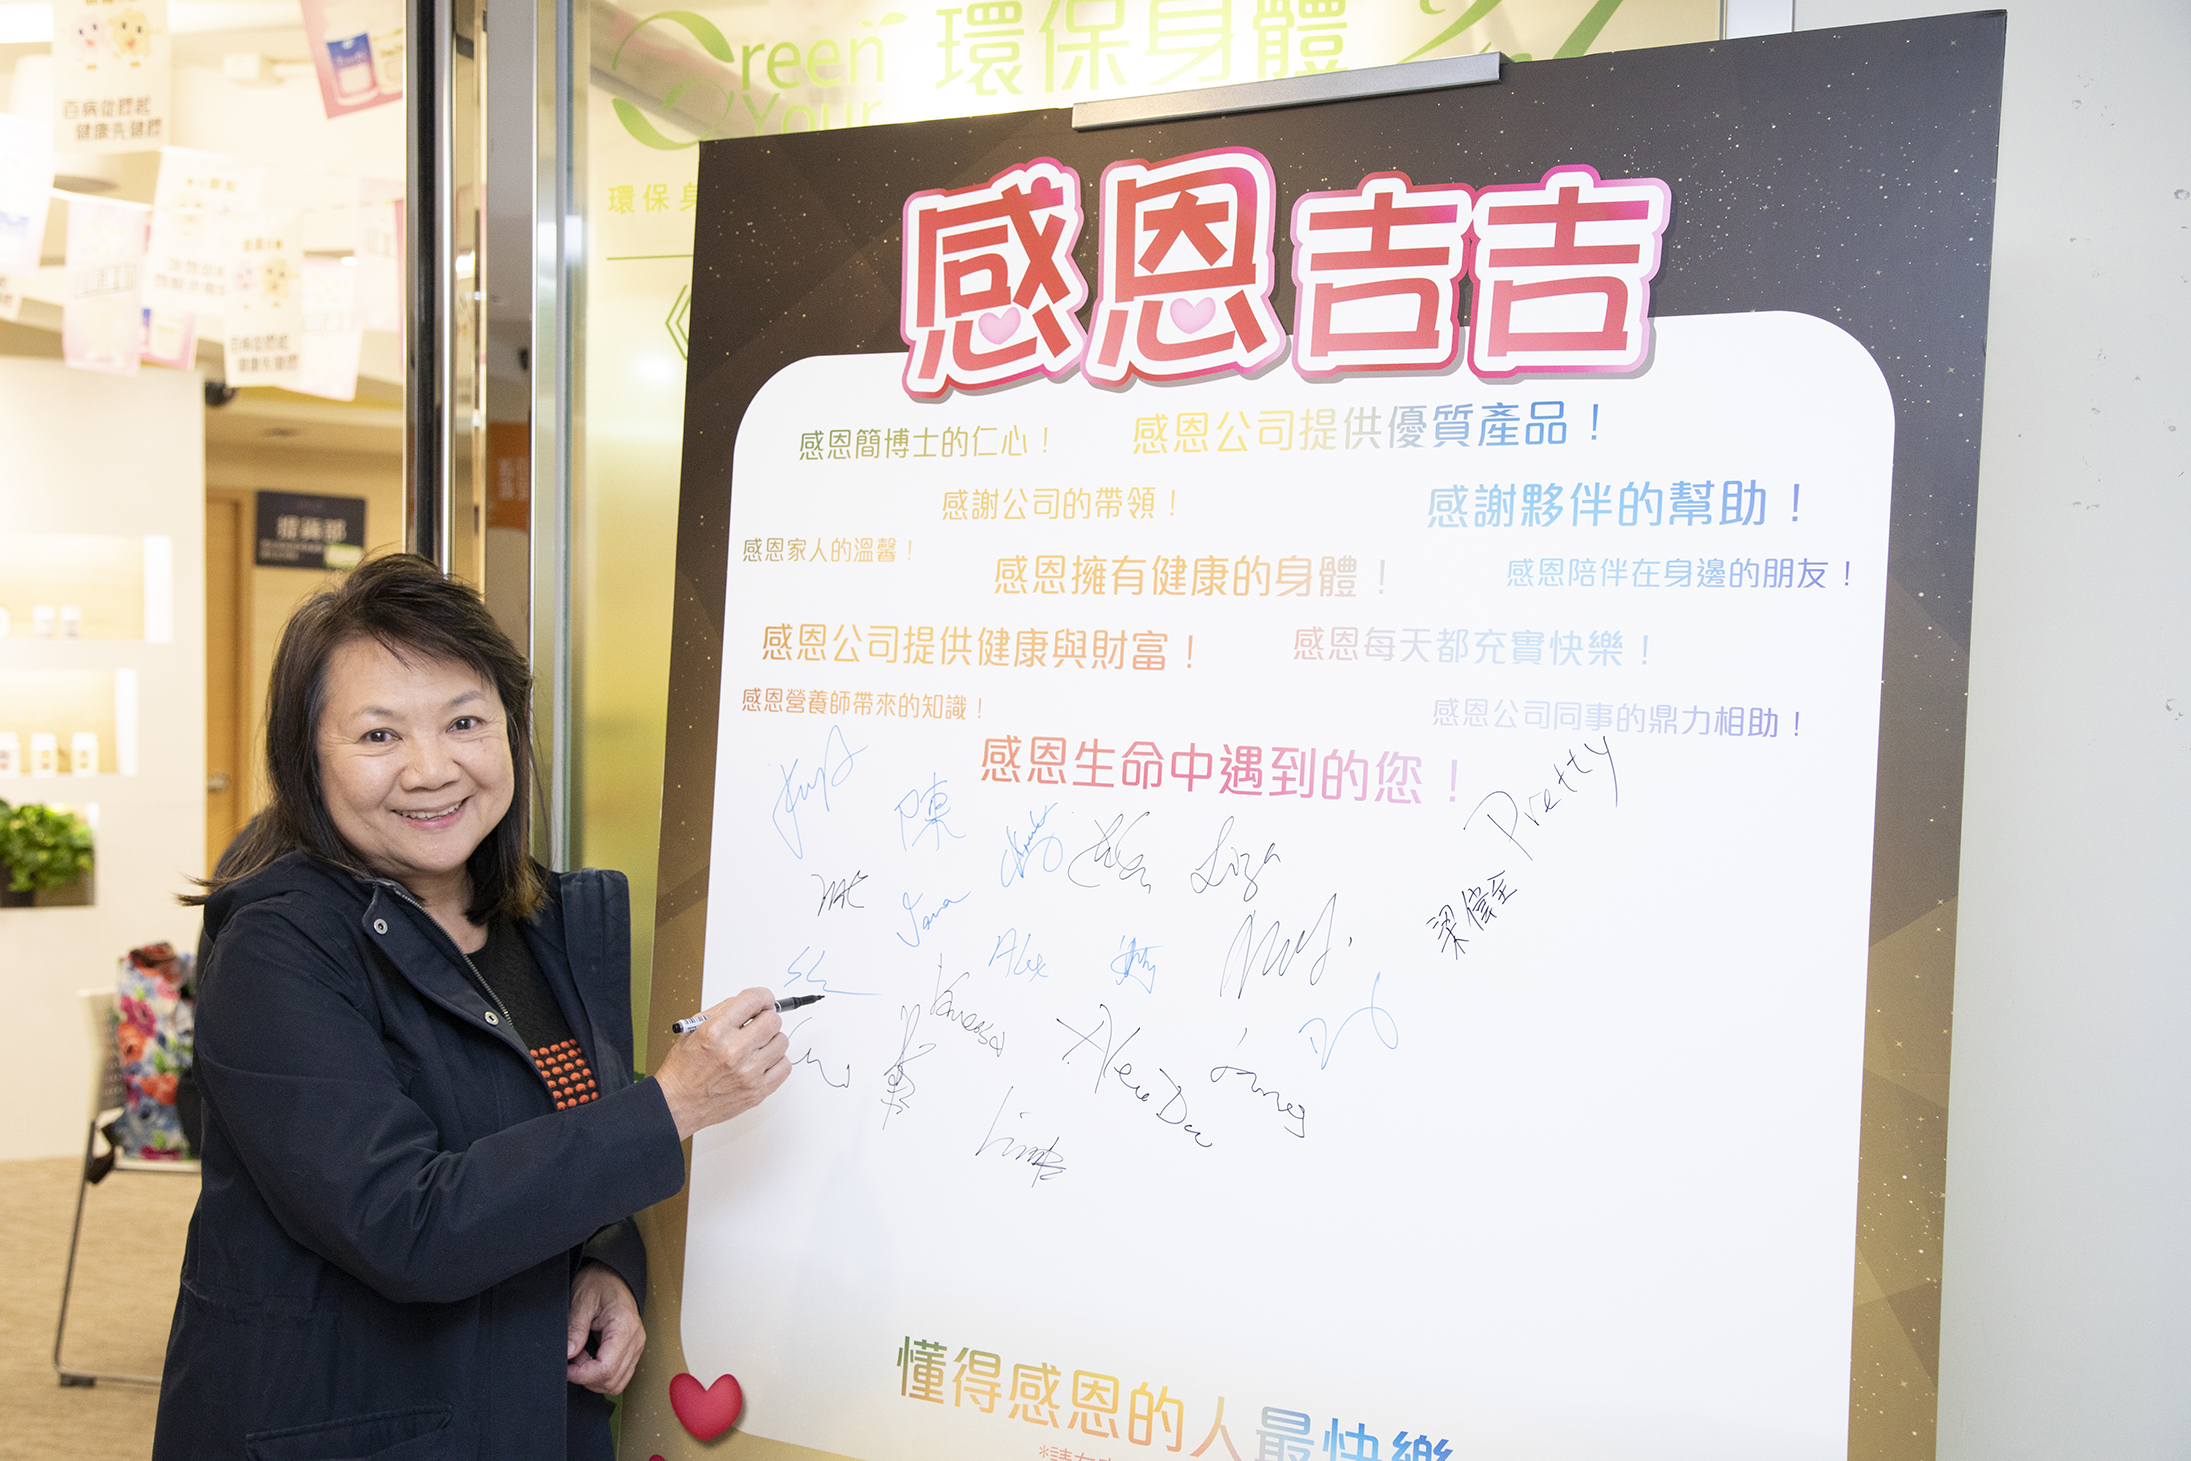 Green 環保身體
Your
環保身
百病從膠起
健康先健膠
百病從膠起
健康先健膠
提貨部
感恩吉吉
感恩簡博士的仁心！
感恩公司提供優質產品！
感謝公司的帶領！
感謝夥伴的幫助！
感恩家人的溫馨！
感恩擁有健康的身體！
感恩陪伴在身邊的朋友！
感恩公司提供健康與財富！
感恩每天都充實快樂！
感恩營養師帶來的知識！
感恩公司同事的鼎力相助！
感恩生命中遇到的您！
Pretty
陳
Liza
梁偉全
Yana
Alex
Vanessa
Alex Du
懂得感恩的人最快樂